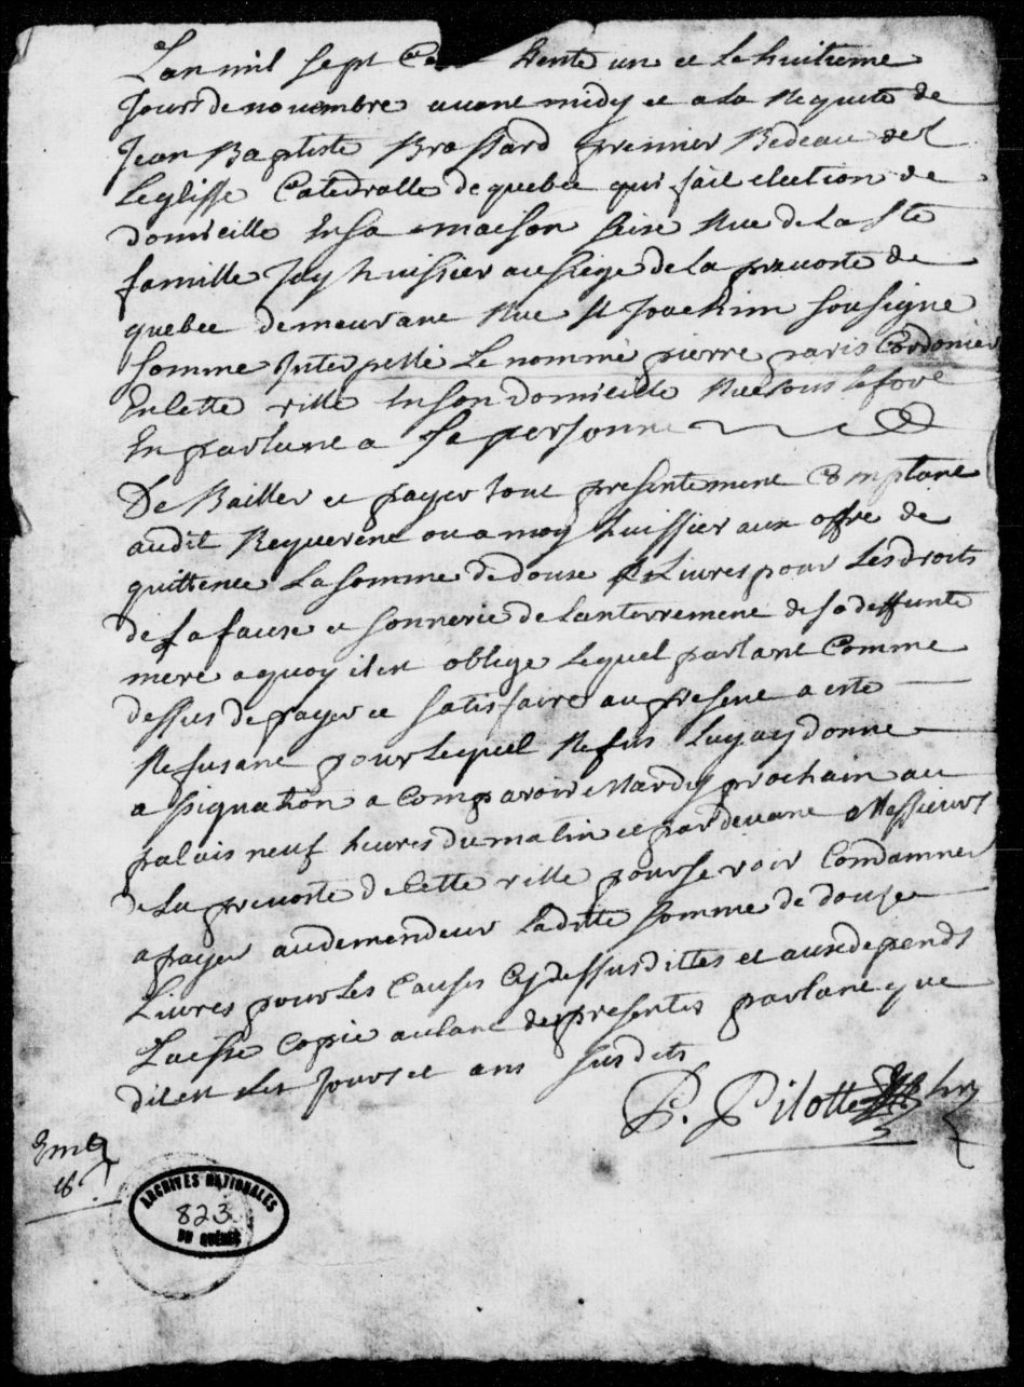 Lan mil sept Ce trente un et le huitieme
Jour de novembre avant midy et a la Requete de
Jean Baptiste Brassard premier Bedeau de L
Leglisse Catedralle de quebec qui fait election de
domicille En sa maison size Rue de La Ste
famille Jay huissier au siege de la prevoste de
quebec demeurant Rue St Joachim sousigne
Somme Interpellé Le nommé pierre paris Cordonier
En Cette ville En son domicille Rue sous le fort
En parlant a sa personne
De Bailler et payer tout presentement Comptant
audit Requerent ou a moy huissier aux offre de
quittence La somme de douse Livres pour Les droits
de La fause et sonnerie de Lanterrement de sa deffunte
mere a quoy il est oblige Lequel parlant Comme
dessus de payer et satisfaire au present a este
Refusant pour Lequel Refus Luy ay donne
assignation a Comparoir Mardy prochain au
palais neuf heures du matin et pardevant Messieurs
de La prevoste de Cette ville pour se voir Condamner
a payer au demendeur Laditte somme de douze
Livres pour Les Causes Cy dessus dittes et aux depends
Laissé Copie autant des presentes parlant que
dit est Les Jours et ans susdits
P. Pilotte
ARCHIVES NATIONALES
823
DU QUÉBEC